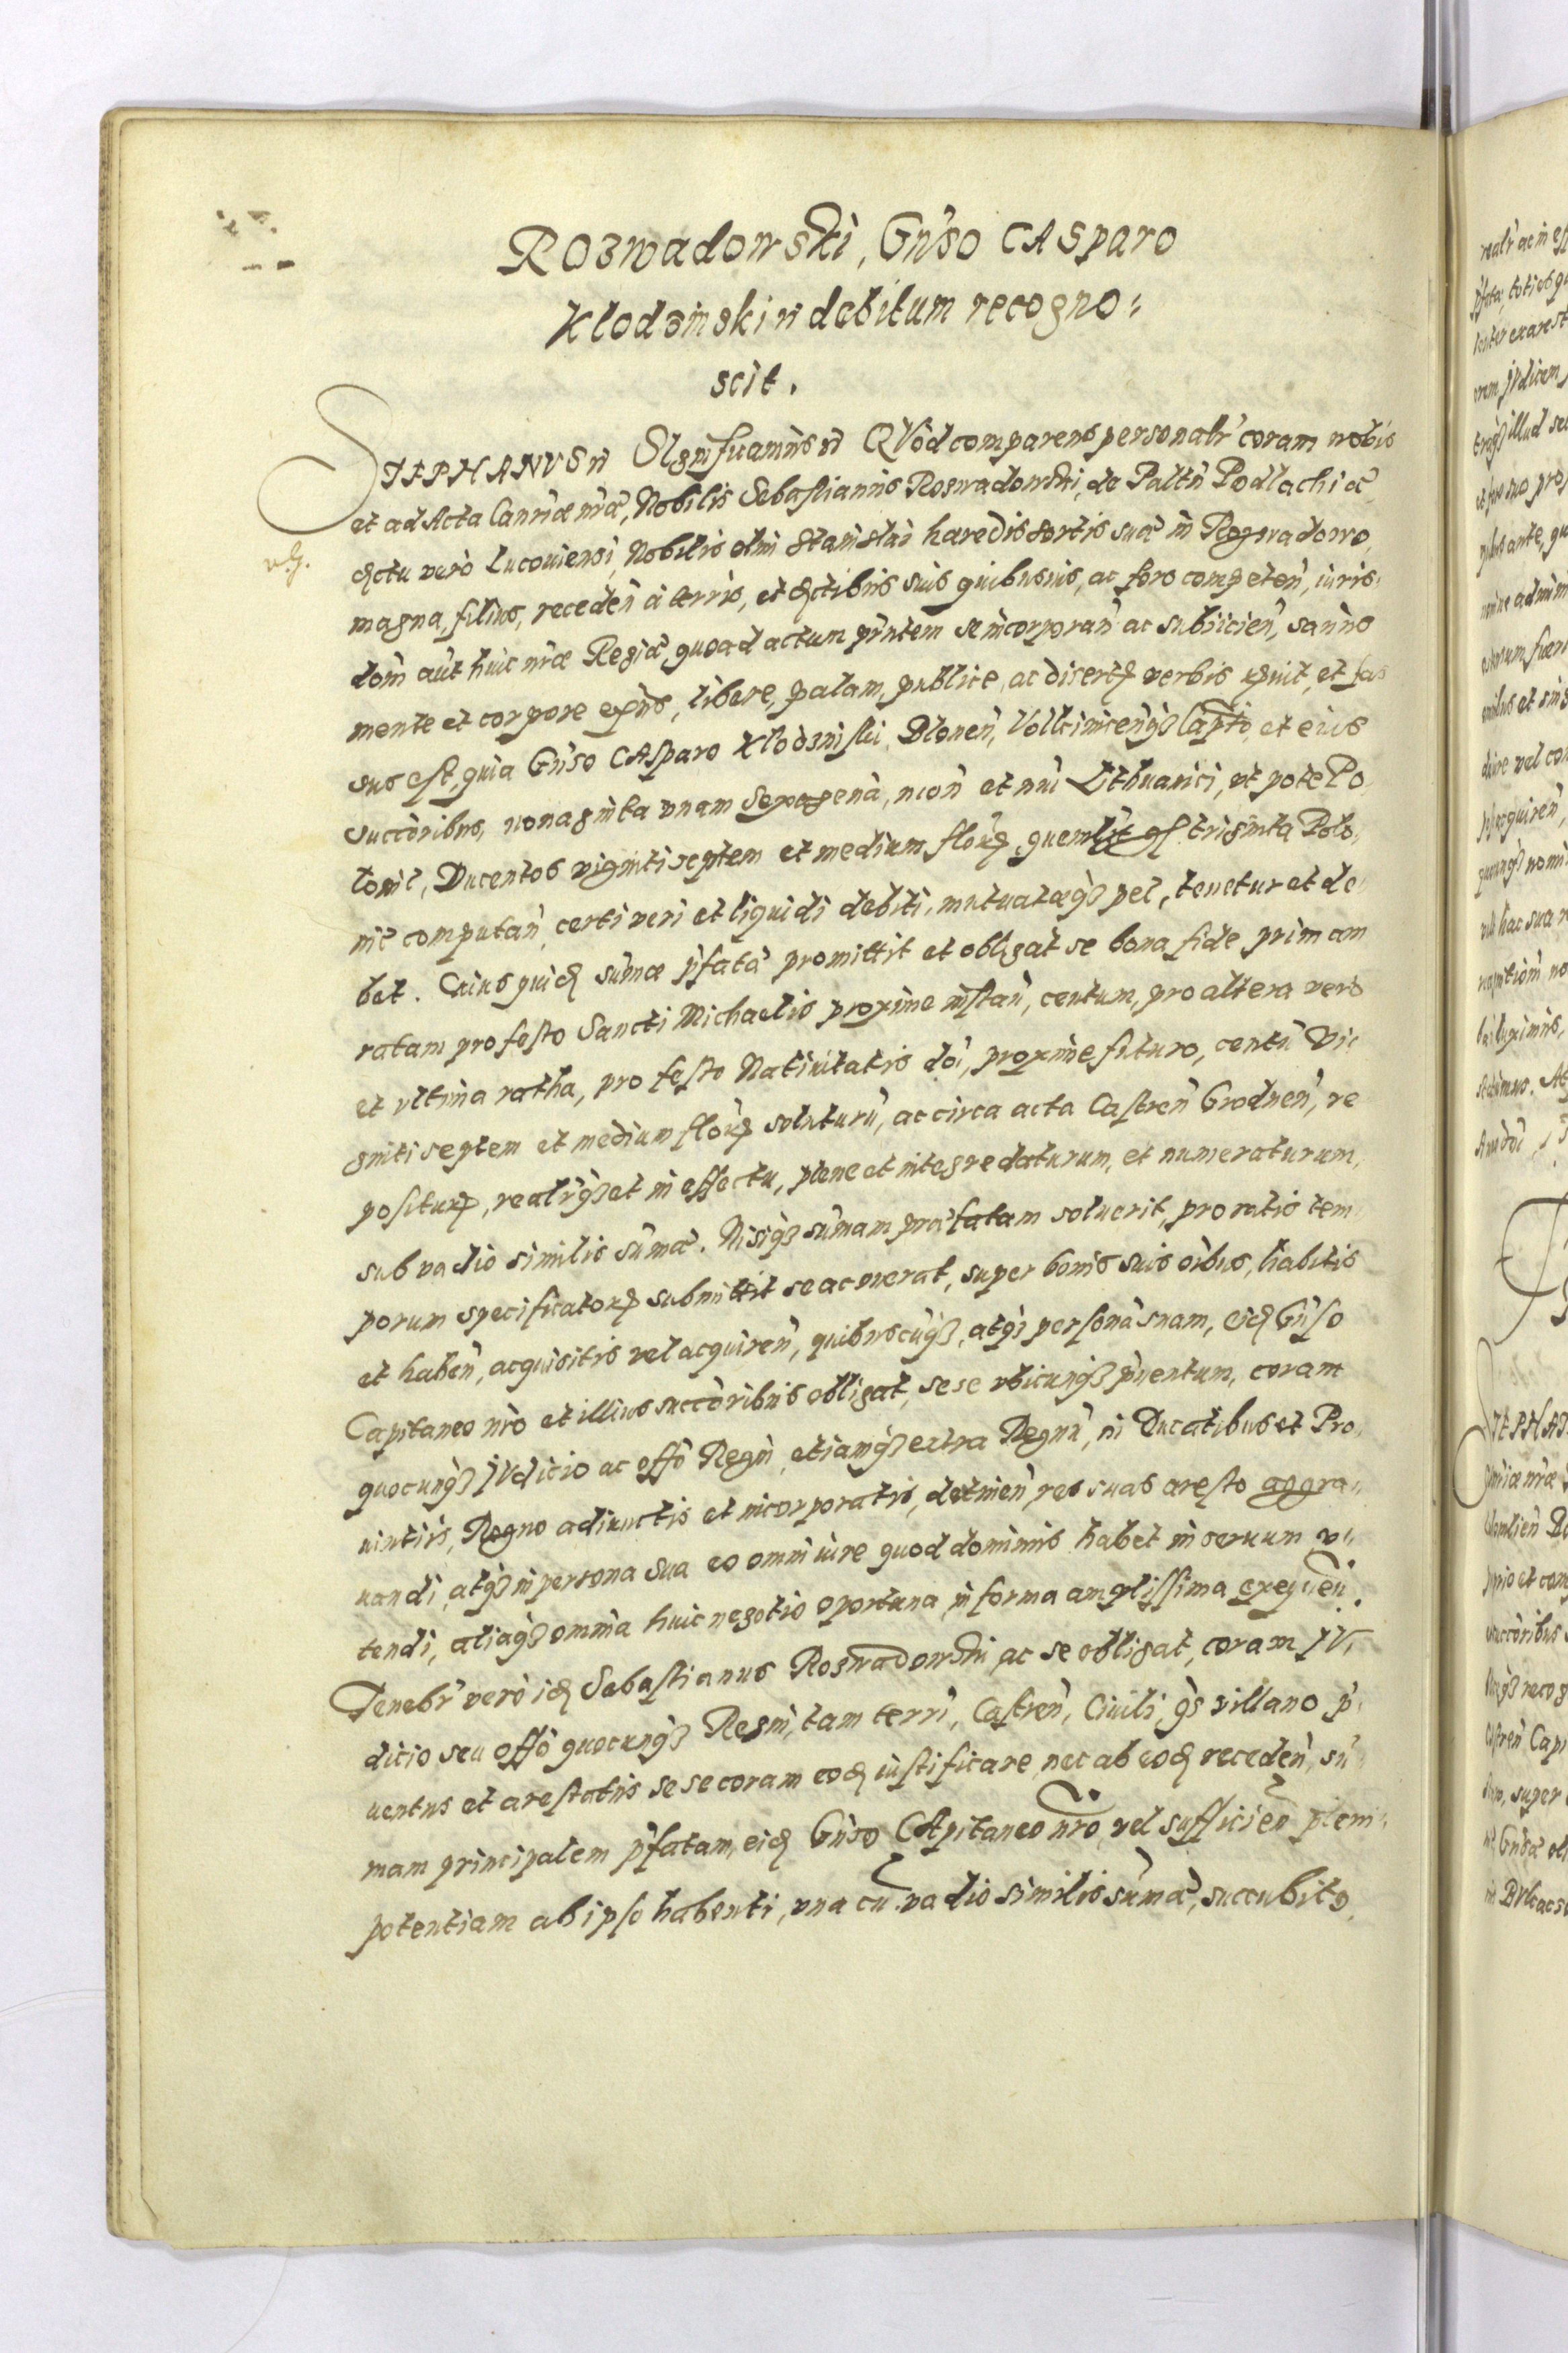 ROSwadowski, Gn̄so CASparo
Klodzinski n debitum recogno:
scit.
STEPHANVS n SIgnificamus n QVod comparens personalr̄ coram nobis
et ad Acta Can̄riæ nr̄æ, Nobilis Sebastianus Roswadowski, de Paltn̄ Podlachiæ
dictu vero Lucouiensi, Nobilis olim Stanislai haeredis sortis suæ in Rogswadowo
magna, filius, receden̄ à terris, et dictibus suis quibusuis, ac foro competen̄, iuris:
dom̄ aut̄ huic nr̄æ Regiæ quoad actum pn̄tem se incorporan̄ ac subiicien̄, sanus
mente et corpore expn̄s, libere, palam, publice, ac disertis verbis expuit, et fas
sus est, quia Gn̄so CASparo Klodzinski, Blonen̄, Volkinicen̄q₃ Capto, et eius
succōribus, nonaginta vnam Sexagenā, n̄con̄ et nn̄i Lithuanici, vt pote Po
lonic, Ducentos viginti septem et medium flor̄, quemlit gs̄ triginta Polo:
nic̄ computan̄, certi veri et liquidi debiti, mutuatæq₃ pec̄, tenetur et de:
bet. Cuius quid sum̄æ pfatæ promittit et obligat se bona fide prim̄ am
ratam pro festo Sancti Michaelis proxime instan̄, centum, pro altera vero
et vltima ratha, pro festo Natiuitatis doī, proxime futuro, centū Vi:
ginti septem et medium flor̄ soluturū, ac circa acta Castren̄ Grodnen̄, re
positur̄, realr̄q₃ et in effectu, plene et integre daturum, et numeraturum,
sub vadio similis sum̄æ. Nisiq₃ sum̄am præfatam soluerit, pro ratis tem
porum specificator̄ submittit se ac onerat, super bonis suis oībus, habitis
et haben̄, acquisitis vel acquiren̄, quibuscūq₃, atq₃ personā suam, eid Gn̄so
Capitaneo nr̄o et illius succōribus obligat, sese vbicunq₃ pn̄entum, coram
quocunq₃ IVdicio ac offō Regn̄i, etiamq₃ extra Regnū, in Ducatibus et Pro
uintiis, Regno adiunctis et incorporatis, detinen̄, res suas aresto aggra:
uandi, atq₃ in persona sua eo omni iure quod dominus habet in seruum v:
tendi, aliaq₃ omnia huic negotio oportuna in forma amplissima exequen̄.
Tenebr̄ vero id Sebastianus Roswadowski, ac se obligat, coram IV:
dicio seu offō quocunq₃ Regni, tam terr̄i, Castren̄, Ciuili, q₃ villano p:
uentus et arestatus sese coram eod iustificare, nec ab eod receden̄, su:
mam principalem pfatam, eid Gn̄so CApitaneo nr̄o vel sufficien̄ pleni:
potentiam ab ipso habenti, vna cū vadio similis sum̄æ, succubito